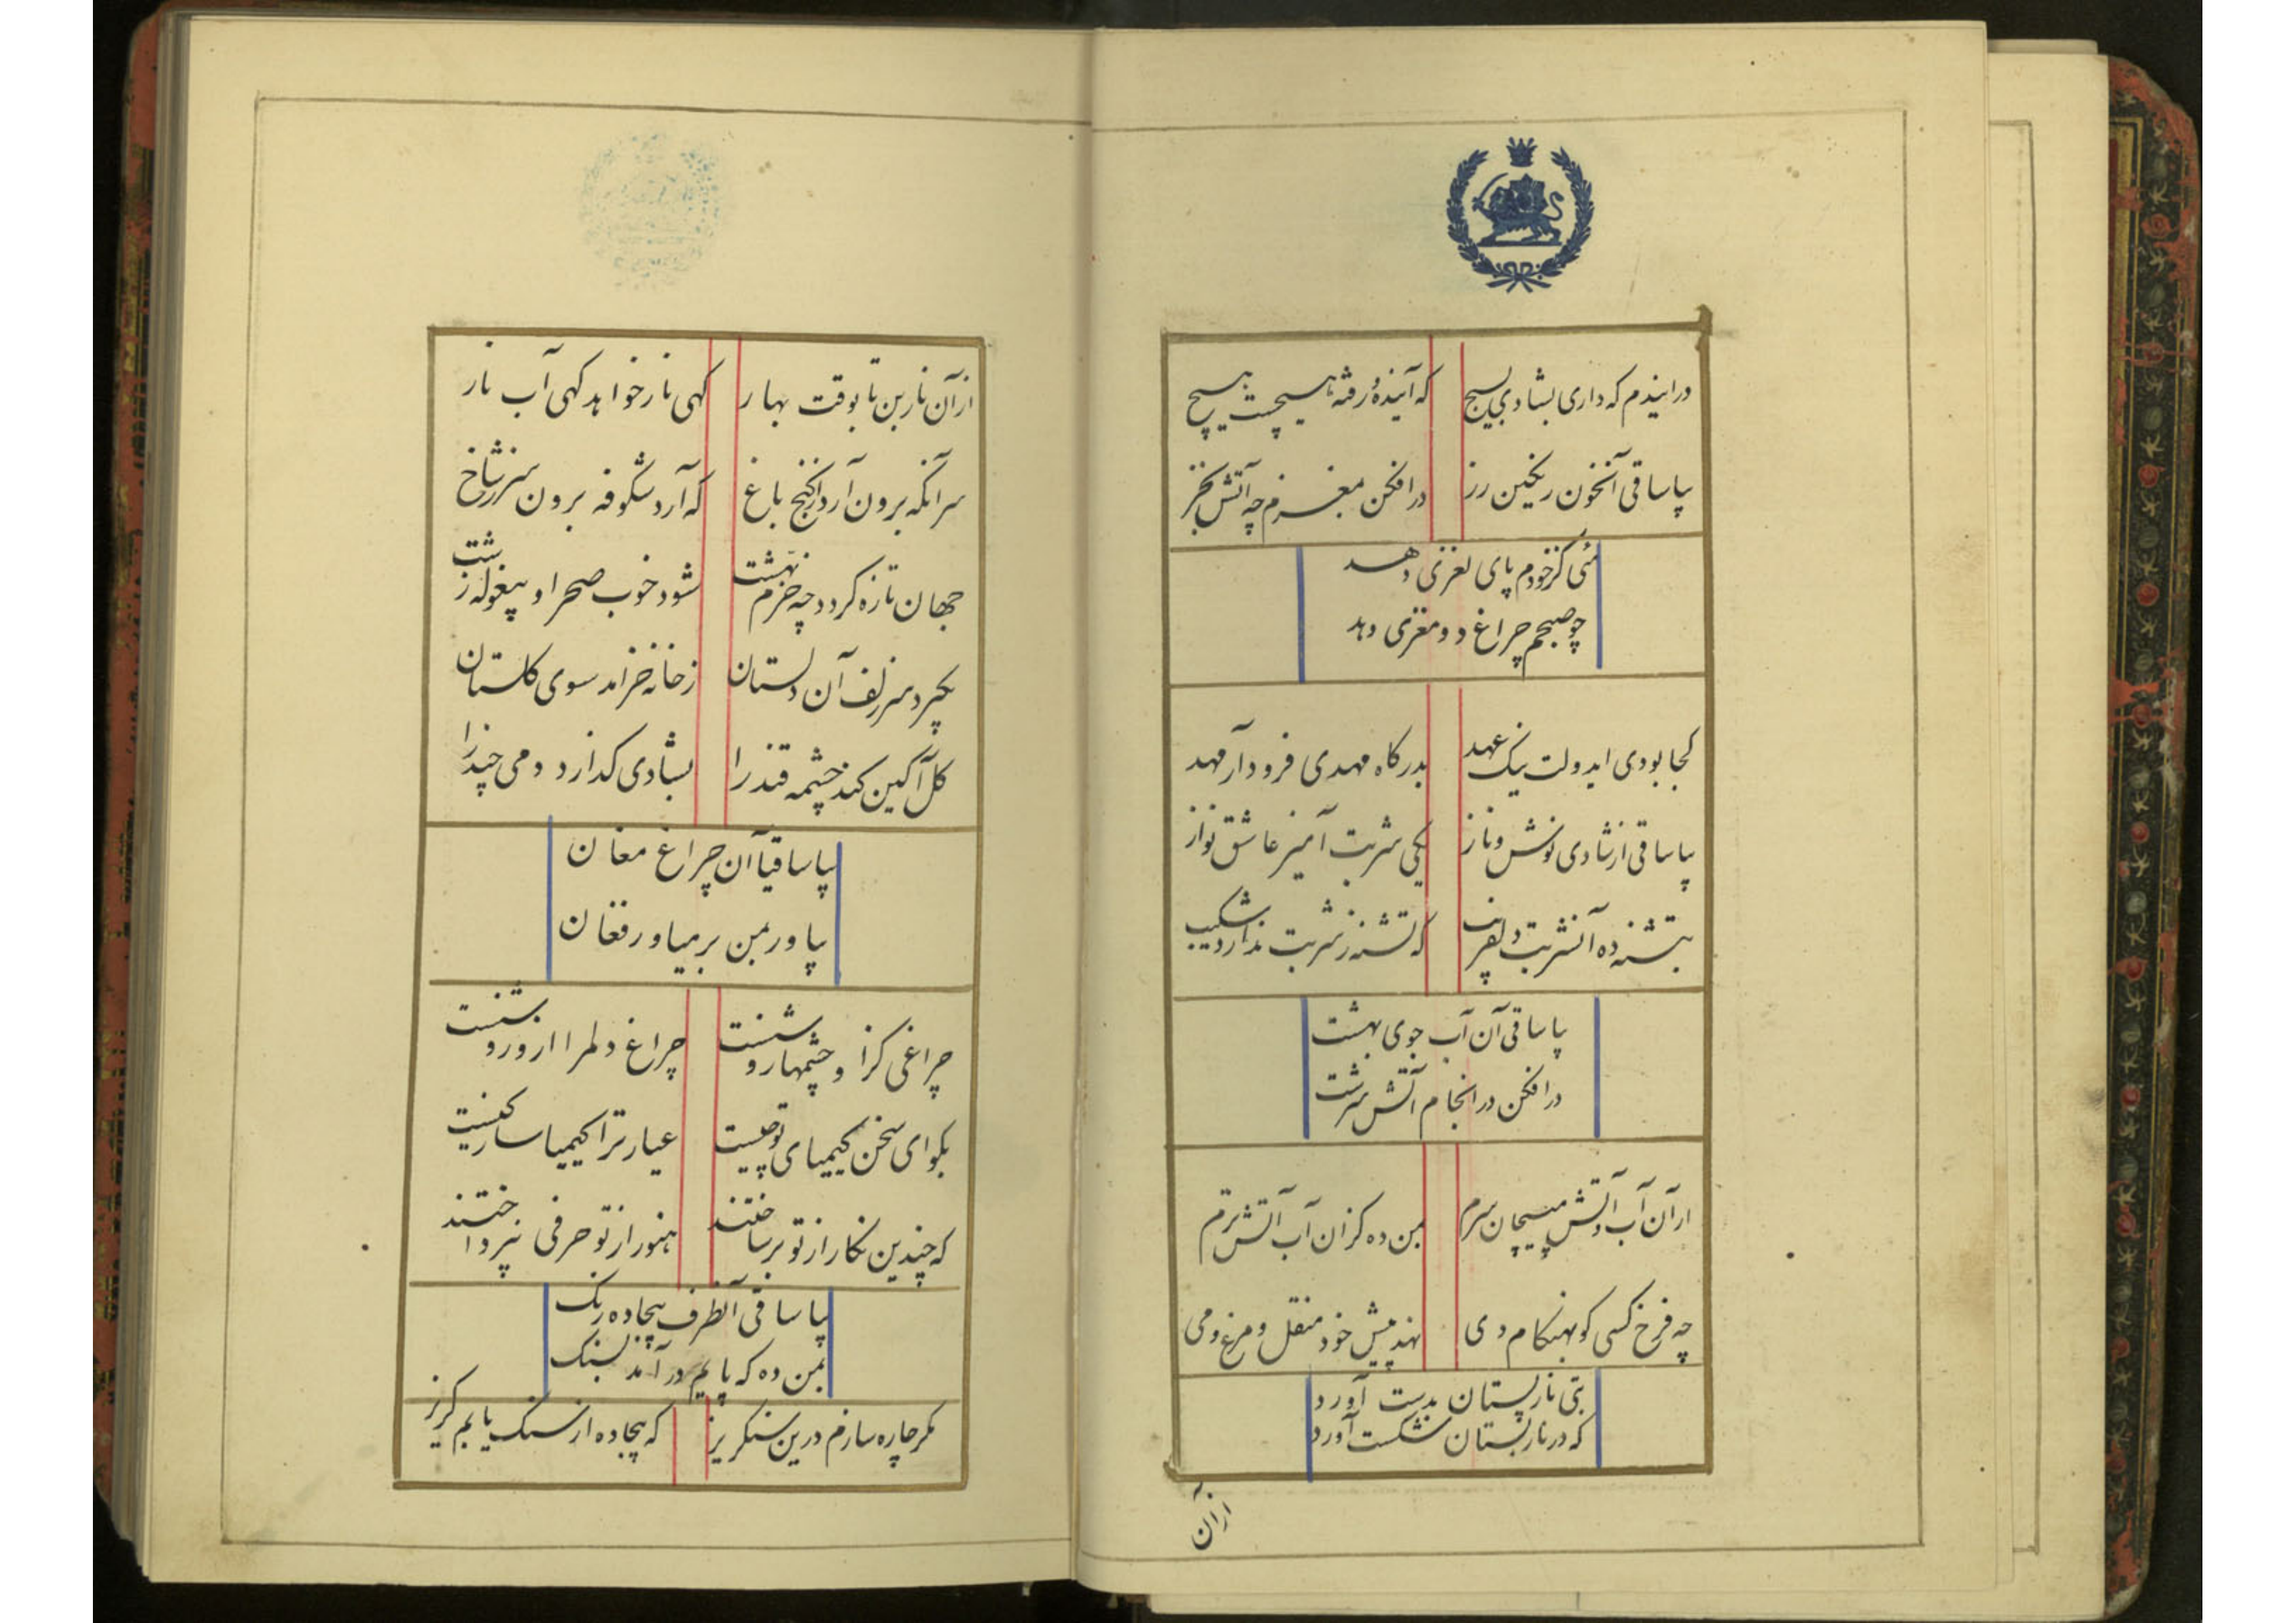 در ایندم که داری بشادی بسیج که آینده و رفته هیچست هیچ
بیا ساقی آنخون رنگین رز در افکن بمغزم چه آتش بخز
مئی کز خودم پای لغزی دهد
چو صبحم چراغ دو مغزی دهد
کجا بودی ایدولت نیک عهد بدرگاه مهدی فرود آر مهد
بیا ساقی از شادی نوش و ناز یکی شربت آمیز عاشق نواز
بتشنه ده آنشربت دلفریب که تشنه ز شربت ندارد شکیب
بیا ساقی آن آب جوی بهشت
در افکن در انجام آتش سرشت
از آن آب و آتش مپیچان سرم بمن ده کز ان آب آتش ترم
چه فرخ کسی کو بهنکام دی نهد پیش خود منقل و مرغ و می
بتی نار پستان بدست آورد
که در نار پستان شکست آورد
از آن
از آن نار بن تا بوقت بهار کهی نار خواهد کهی آب نار
سر آنکه برون آرد از کنج باغ که آرد شکوفه برون سر ز شاخ
جهان تازه کردد چه خرم بهشت شود خوب صحرا و بیغوله زشت
بگیرد سر زلف آن دلستان ز خانه خرامد سوی کلستان
کل آکین کند چشمه قند را بشادی کذارد دمی چند را
بیا ساقیا آن چراغ مغان
بیاور بمن بر میاور فغان
چراغی کزا و چشمها روشنست چراغ دلمرا از و روشنست
بکو ای سخن کیمیای تو چیست عیار ترا کیمیا ساز کیست
که چندین نکار از تو بر ساختند هنوز از تو حرفی نپرداختند
بیا ساقی آنظرف بیجاده رنک
بمن ده که پایم در آمد بسنک
مکر چاره سازم درین سنکریز که بیجاده از سنک یابم کریز